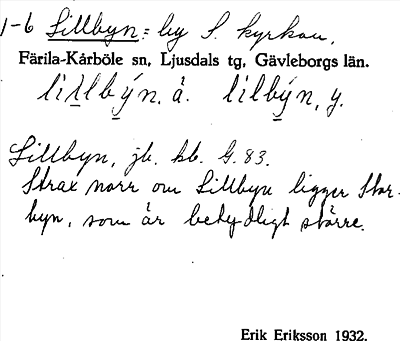 1-6 Lillbyn = by S. kyrkan.
Färila-Kårböle sn, Ljusdals tg, Gävleborgs län.
lillbýn. å. lilbýn, y.
Lillbyn, jb. kb. G. 83.
Strax norr om Lillbyn ligger Stor-
byn, som är betydligt större.
Erik Eriksson 1932.